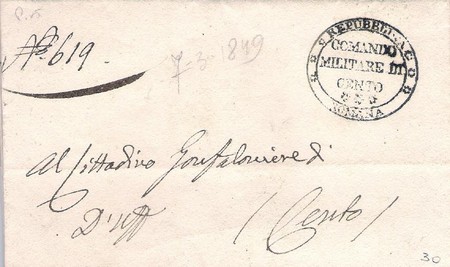 P.S.
N° 619
7-3-1849
REPUBBLICA
ROMANA
COMANDO
MILITARE DI
CENTO
Al Cittadino Gonfaloniere di
D'Uff
(Cento)
30